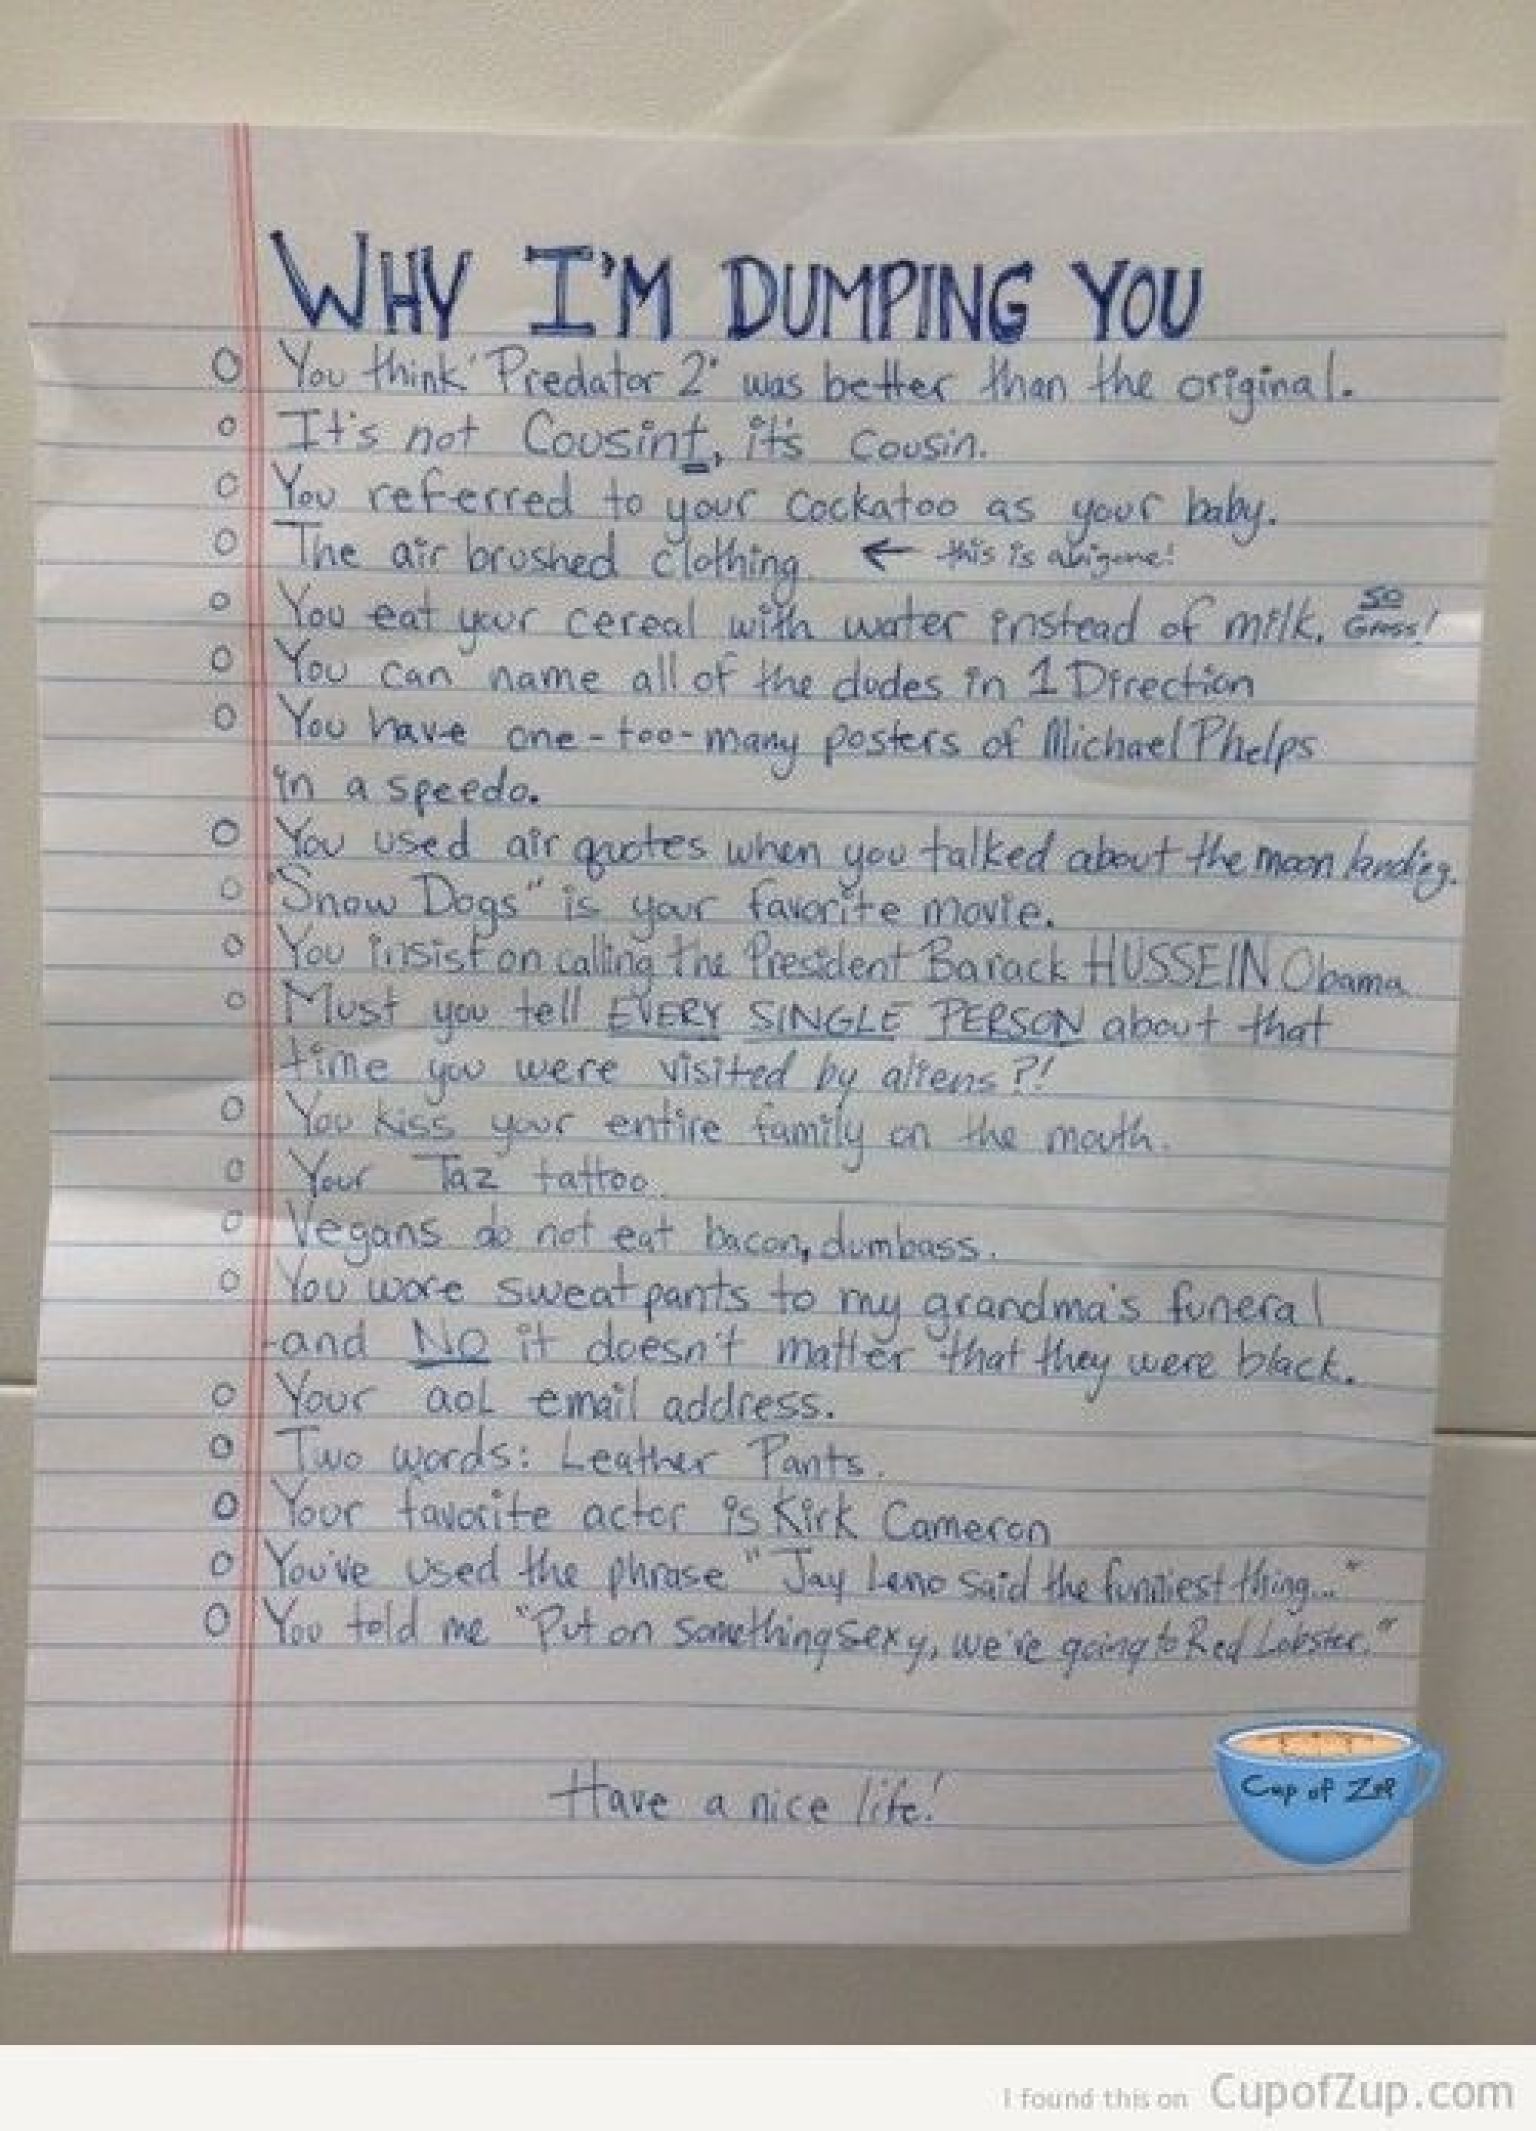 WHY I'M DUMPING YOU
o You think 'Predator 2' was better than the original.
o It's not Cousint, it's Cousin.
o You referred to your cockatoo as your baby.
o The air brushed clothing. ← this is a bigone!
o You eat your cereal with water instead of milk. SO GROSS!
o You can name all of the dudes in 1 Direction
o You have one-too-many posters of Michael Phelps
in a speedo.
o You used air quotes when you talked about the moon landing.
o "Snow Dogs" is your favorite movie.
o You insist on calling the President Barack HUSSEIN Obama
o Must you tell EVERY SINGLE PERSON about that
time you were visited by aliens?!
o You kiss your entire family on the mouth.
o Your Taz tattoo.
o Vegans do not eat bacon, dumbass.
o You wore sweatpants to my grandma's funeral
-and NO it doesn't matter that they were black.
o Your aoL email address.
o Two words: Leather Pants.
o Your favorite actor is Kirk Cameron
o You've used the phrase "Jay Leno said the funniest thing..."
o You told me "Put on something sexy, we're going to Red Lobster."
Have a nice life!
Cup of Zup
I found this on CupofZup.com